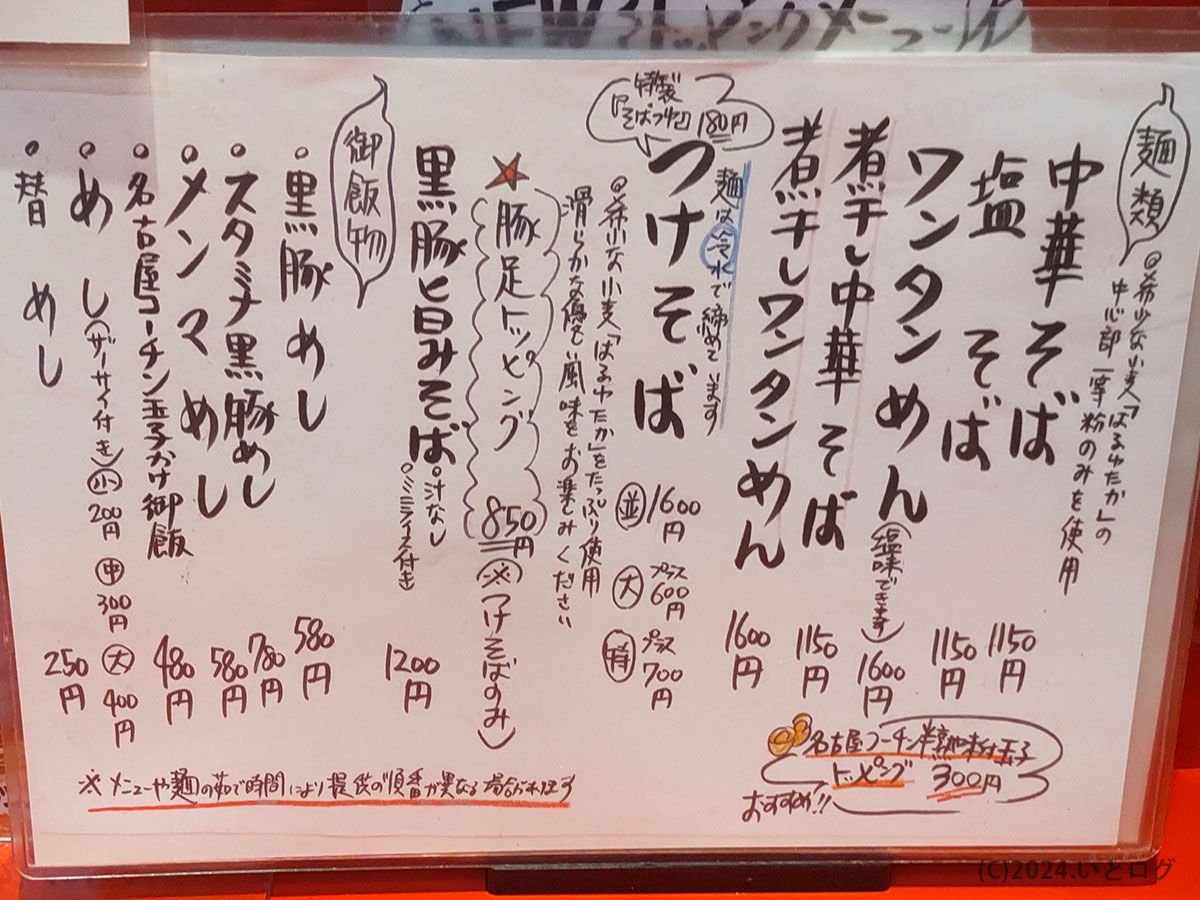 NEWトッピングメニュー
麺類
@希少な小麦「はるゆたか」の
中心部一等粉のみを使用
中華そば 1150円
塩そば 1150円
ワンタンめん(塩味できます) 1600円
煮干し中華そば 1150円
煮干しワンタンめん 1600円
麺は冷水で締めています
特製
「そばつゆ」180円
つけそば 並 1600円 大 プラス600円 特 プラス700円
@希少な小麦「はるゆたか」をたっぷり使用
滑らかな優しい風味をお楽しみください
★豚足トッピング 850円(※つけそばのみ)
黒豚旨みそば 1200円
汁なし
ミニライス付き
御飯物
黒豚めし 580円
スタミナ黒豚めし 780円
メンマめし 580円
名古屋コーチン玉子かけ御飯 480円
めし(ザーサイ付き) 小 200円 中 300円 大 400円
替めし 250円
名古屋コーチン半熟味付玉子
トッピング 300円
おすすめ!!
※メニューや麺の茹で時間により提供の順番が異なる場合があります
(C)2024.いとログ